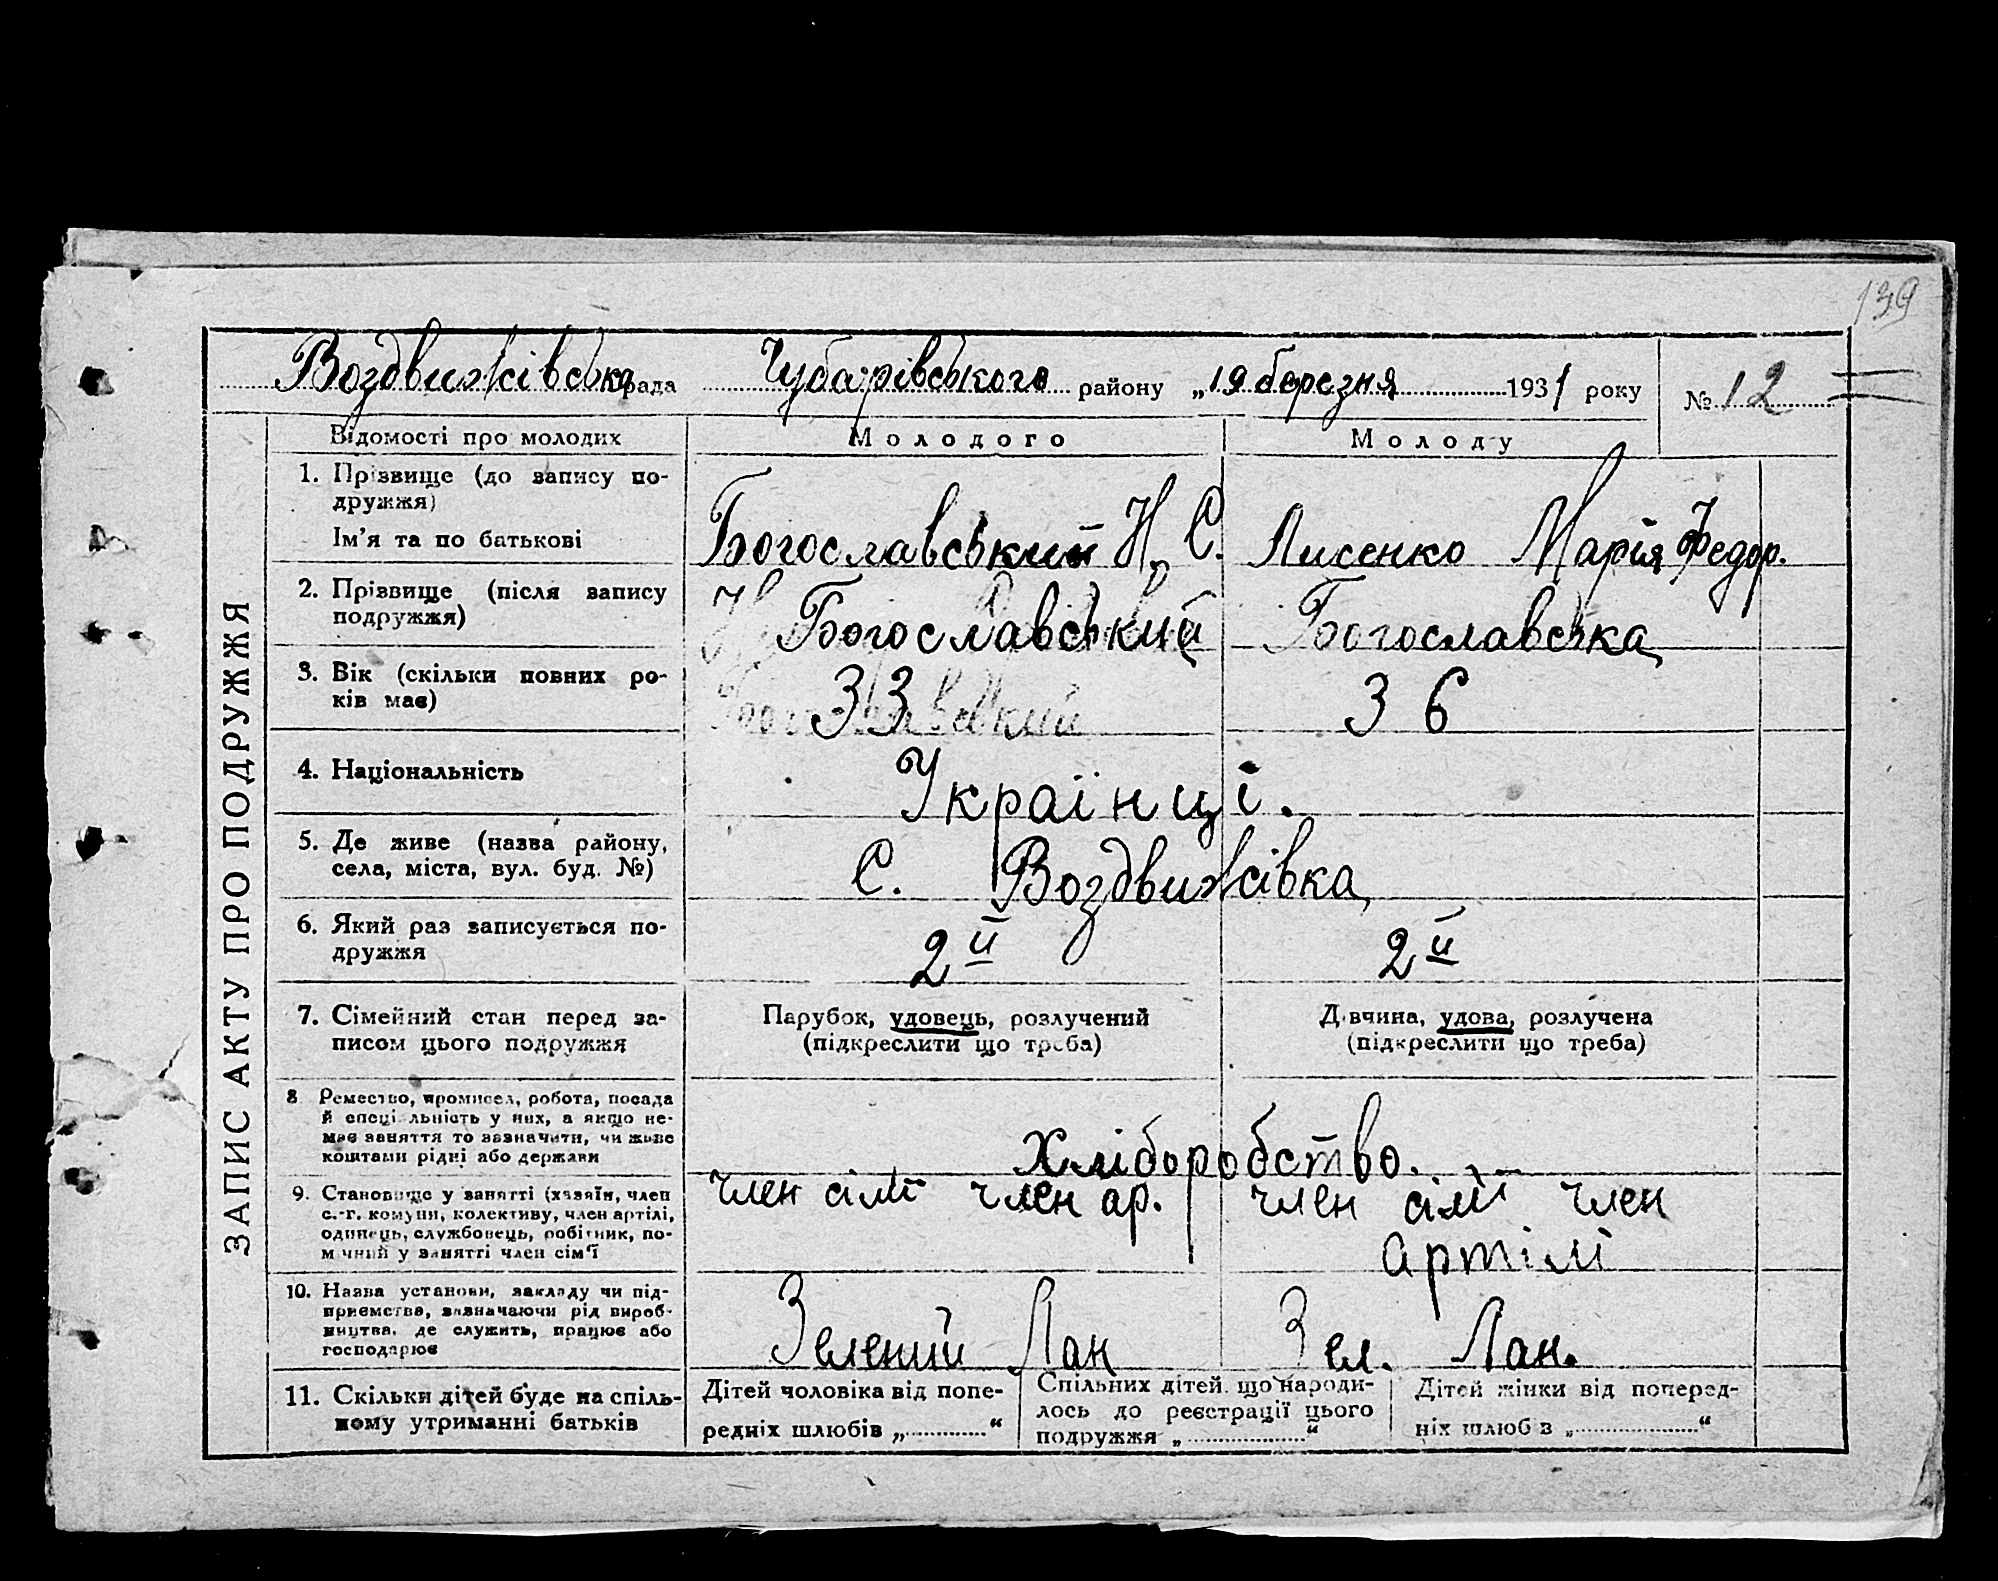 139
Воздвижівська рада Чубарівського району „19 березня 1931 року № 12
ЗАПИС АКТУ ПРО ПОДРУЖЖЯ
Відомості про молодих Молодого Молоду
1. Прізвище (до запису по-
дружжя)
Ім'я та по батькові
Богославський Н. С. Лисенко Марія Федор.
2. Прізвище (після запису
подружжя)
Богославський Богославська
3. Вік (скільки повних ро-
ків має)
33 36
4. Національність
Українці.
5. Де живе (назва району,
села, міста, вул. буд. №)
С. Воздвижівка
6. Який раз записується по-
дружжя
2й 2й
7. Сімейний стан перед за-
писом цього подружжя
Парубок, удовець, розлучений
(підкреслити що треба)
Дівчина, удова, розлучена
(підкреслити що треба)
8 Ремество, промисел, робота, посада
й спеціяльність у них, а якщо не-
має заняття то зазначити, чи живе
коштами рідні або держави
Хліборобство.
9. Становище у занятті (хазяїн, член
с.-г. комуни, колективу, член артілі,
одинець, службовець, робітник, по-
мічний у занятті член сім'ї
член сімї член ар. член сімї член
артілі
10. Назва установи, закладу чи під-
приємства, зазначаючи рід вироб-
ництва, де служить, працює або
господарює
Зелений Лан Зел. Лан.
11. Скільки дітей буде на спіль-
ному утриманні батьків
Дітей чоловіка від попе-
редніх шлюбів „ “
Спільних дітей, що народи-
лось до реєстрації цього
подружжя „ “
Дітей жінки від поперед-
ніх шлюбів „ “